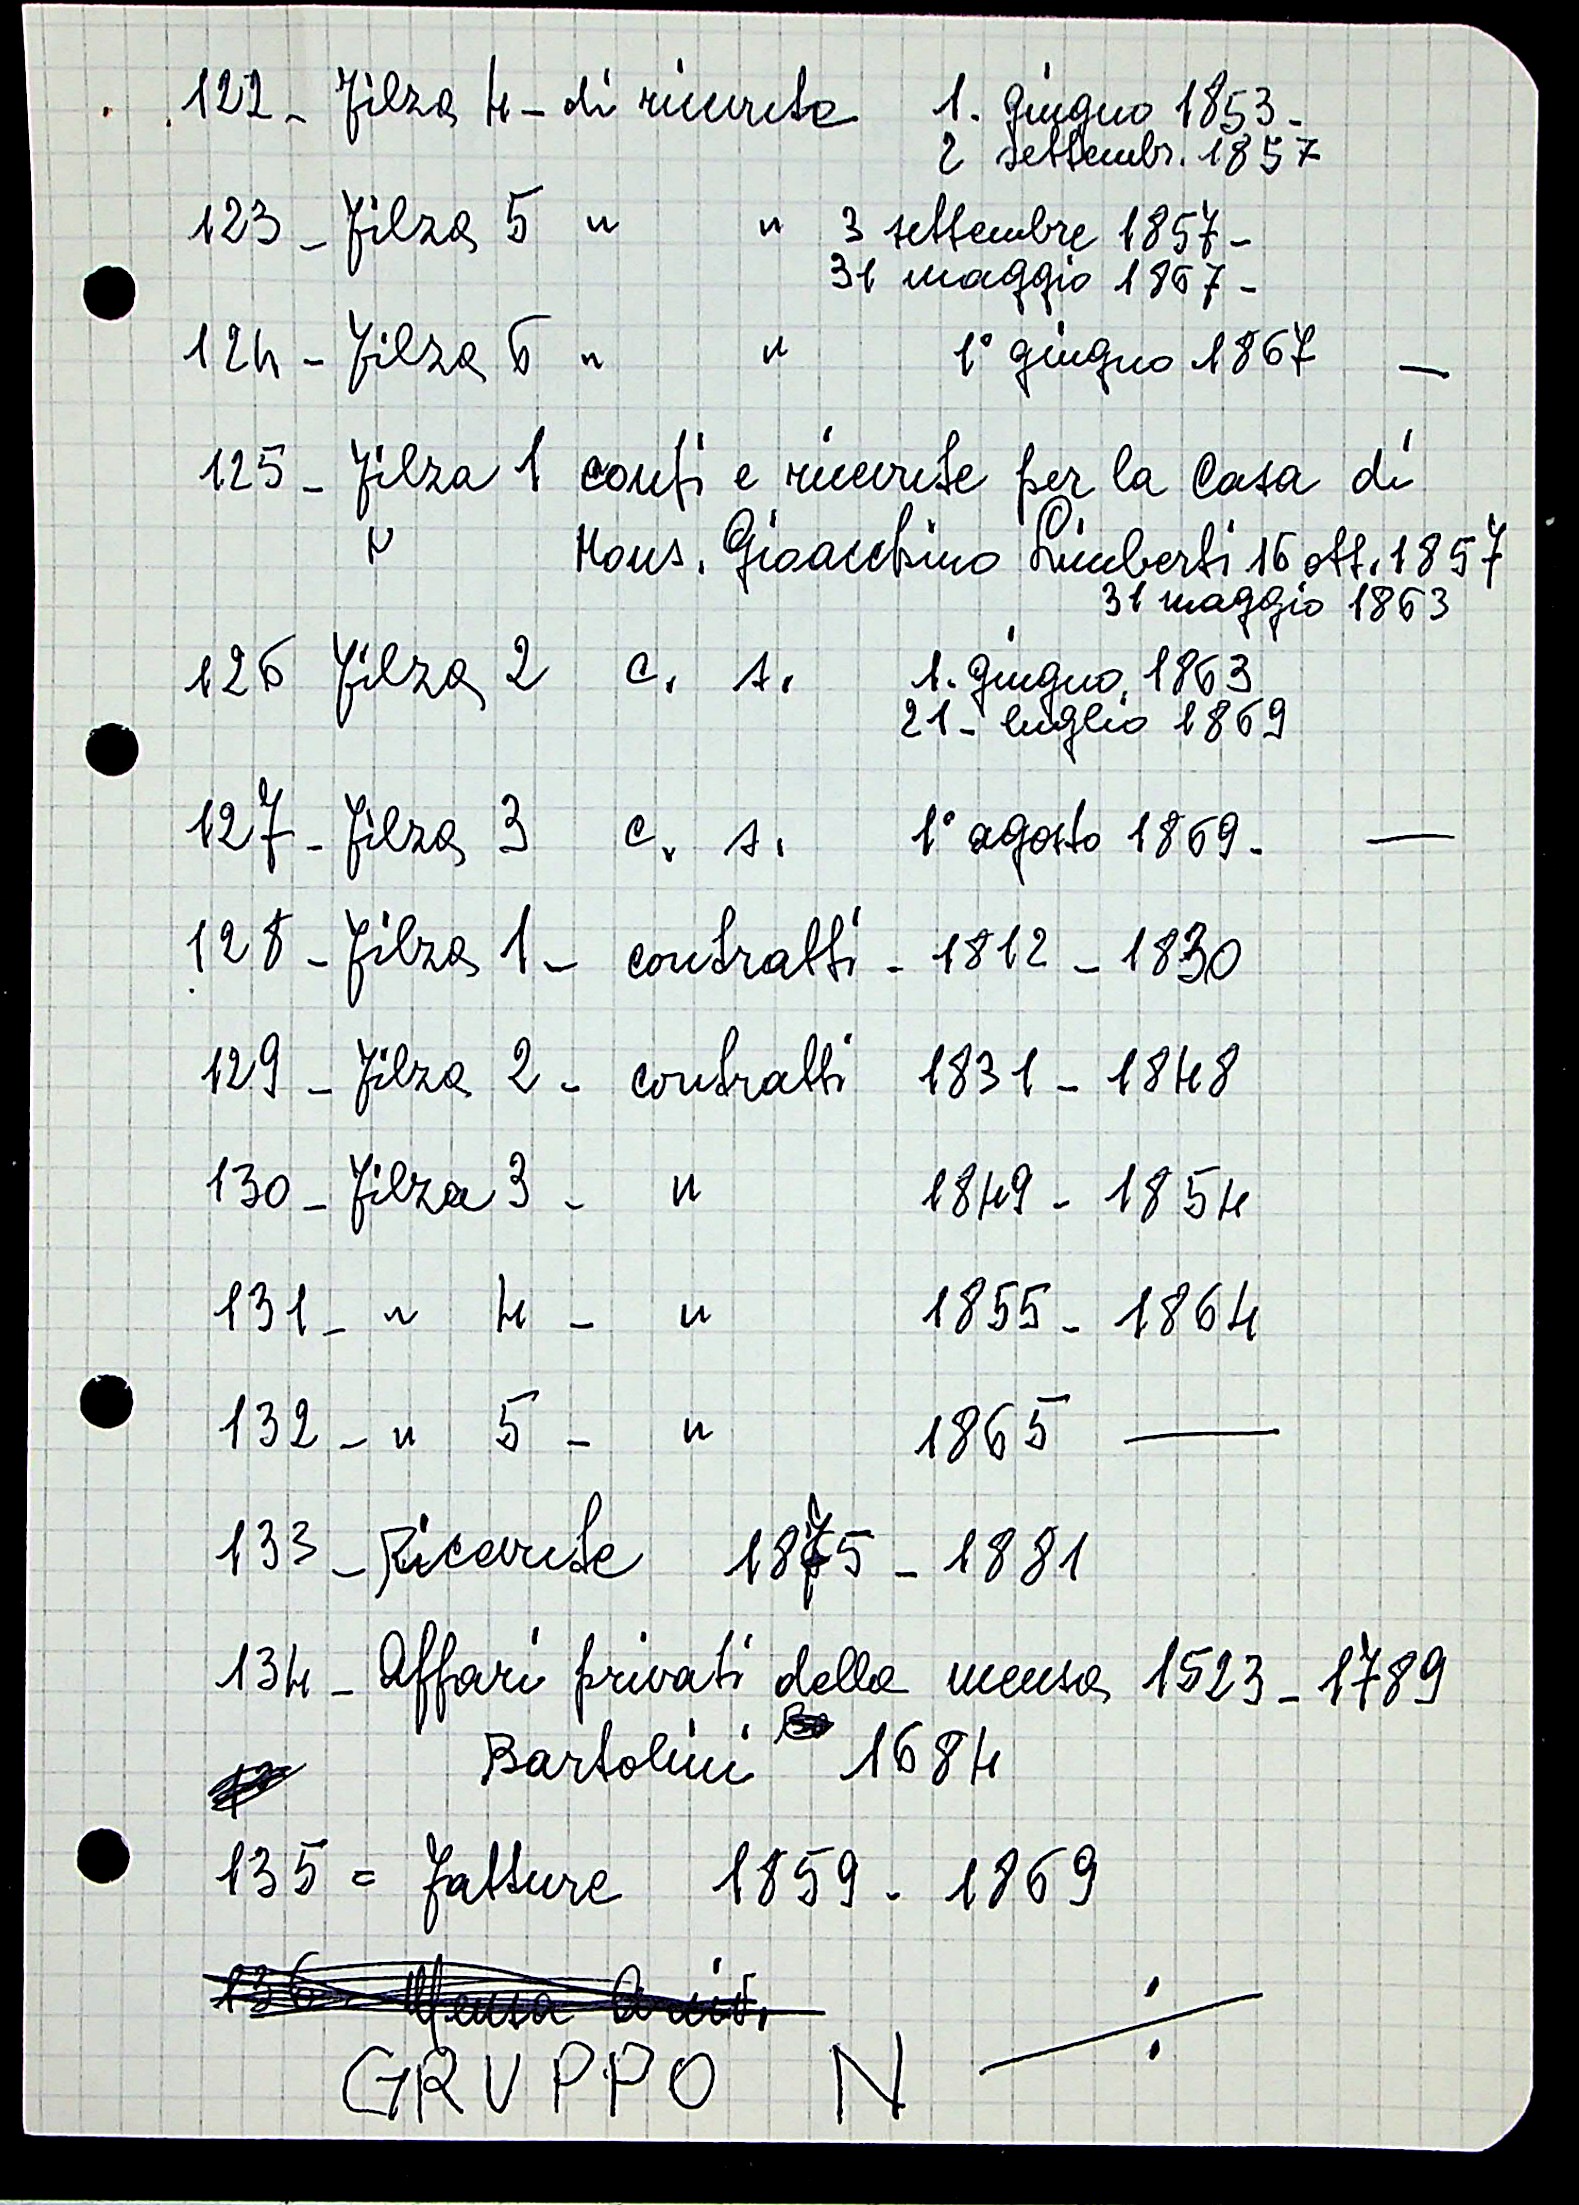 122 - Filza 4 - di ricevute 1. giugno 1853 -
2 settembr. 1857
123 - Filza 5 " " 3 settembre 1857 -
31 maggio 1867 -
124 - Filza 6 " " 1° giugno 1867 —
125 - Filza 1 conti e ricevute per la Casa di
" Mons. Gioacchino Limberti 16 ott. 1857
31 maggio 1863
126 Filza 2 c. s. 1. giugno 1863
21 - luglio 1869
127 - Filza 3 c. s. 1° agosto 1869 - —
128 - Filza 1 - contratti - 1812 - 1830
129 - Filza 2 - contratti 1831 - 1848
130 - Filza 3 - " 1849 - 1854
131 - " 4 - " 1855 - 1864
132 - " 5 - " 1865 —
133 - Ricevute 1875 - 1881
134 - Affari privati della mensa 1523 - 1789
Bartolini 1684
135 = Fatture 1859 - 1869
136 Mensa Arciv.
GRUPPO N